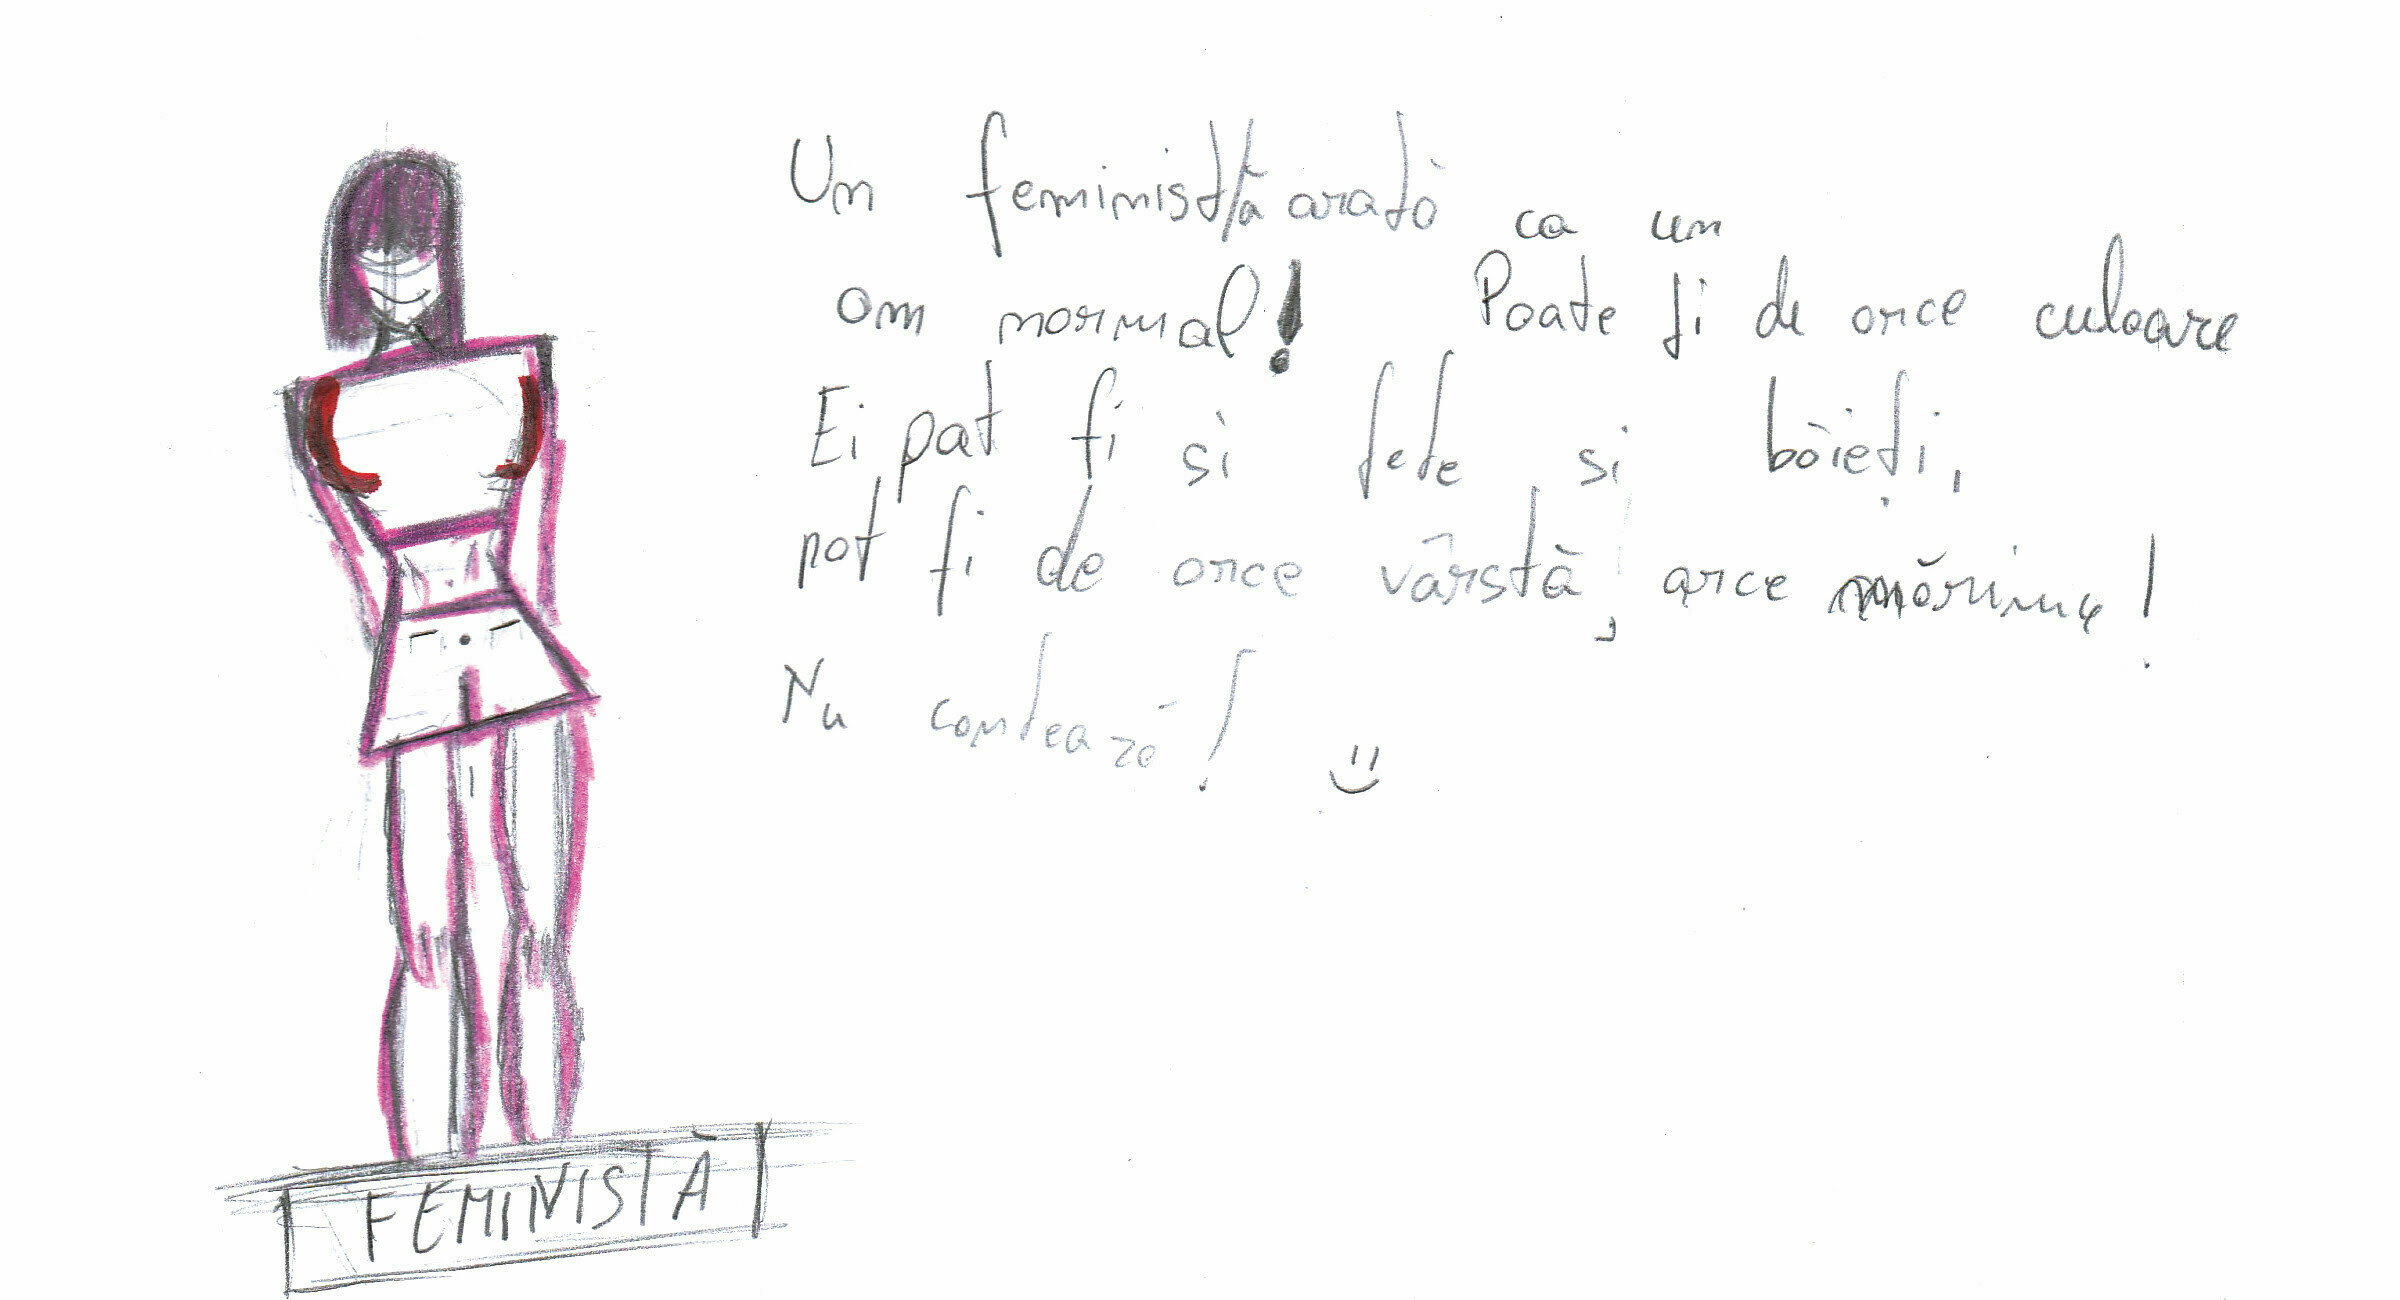 Un feminist/ă arată ca un
om normal! Poate fi de orce culoare
Ei pot fi si fete si băieți,
pot fi de orce vârstă, orce mărime!
Nu contează! :)
FEMINISTĂ